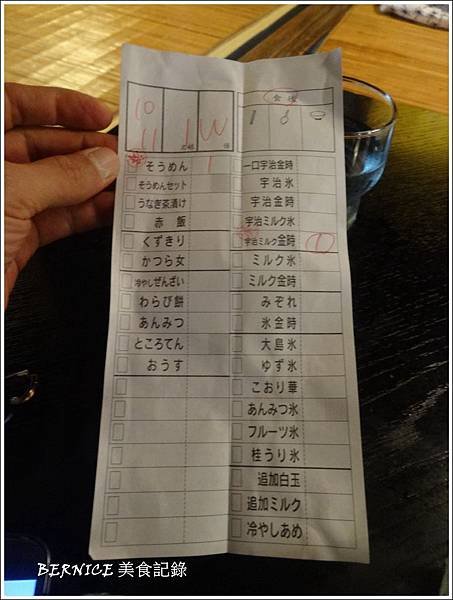 10
11 1 W
名様
様
食後
そうめん 1
そうめんセット
うなぎ茶漬け
赤飯
くずきり
かつら女
冷やしぜんざい
わらび餅
あんみつ
ところてん
おうす
一口宇治金時
宇治氷
宇治金時
宇治ミルク氷
宇治ミルク金時 1
ミルク氷
ミルク金時
みぞれ
氷金時
大島氷
ゆず氷
こおり華
あんみつ氷
フルーツ氷
桂うり氷
追加白玉
追加ミルク
冷やしあめ
BERNICE 美食記錄